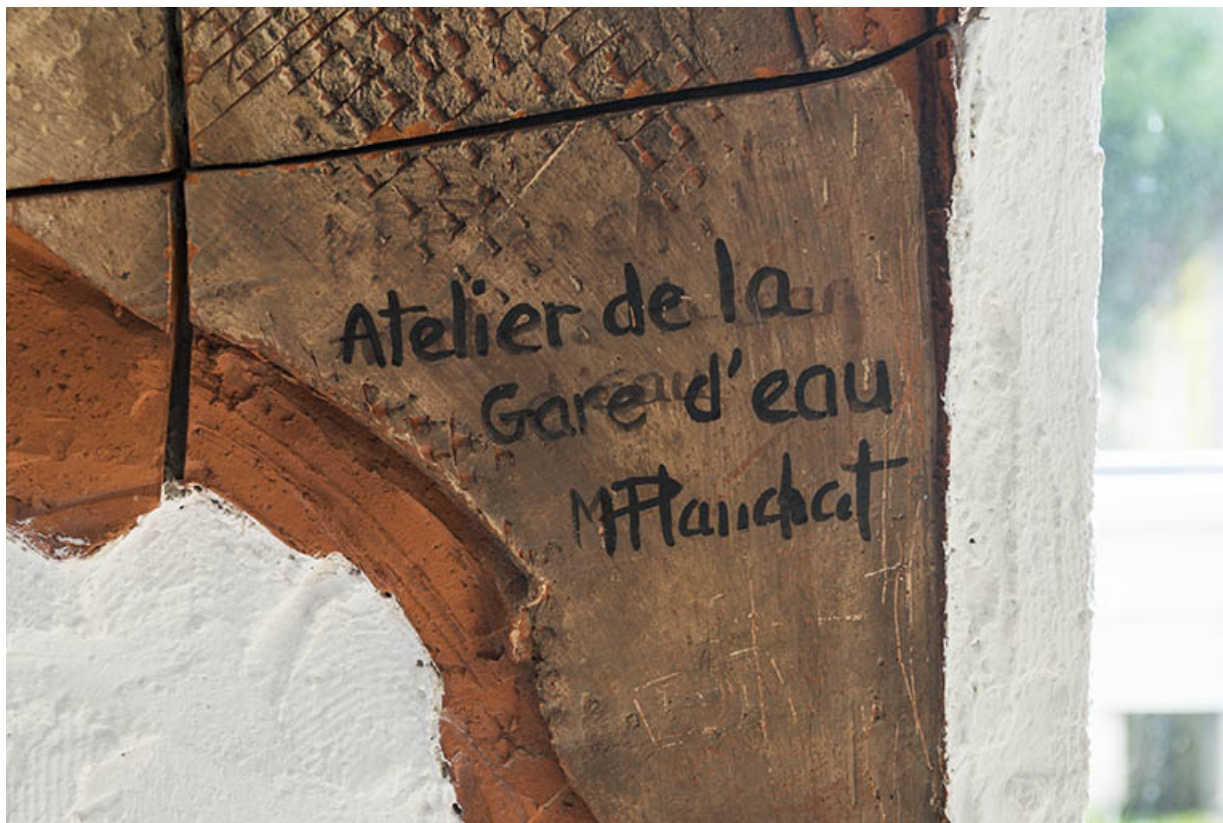 Atelier de la
Gare d'eau
M Planchat